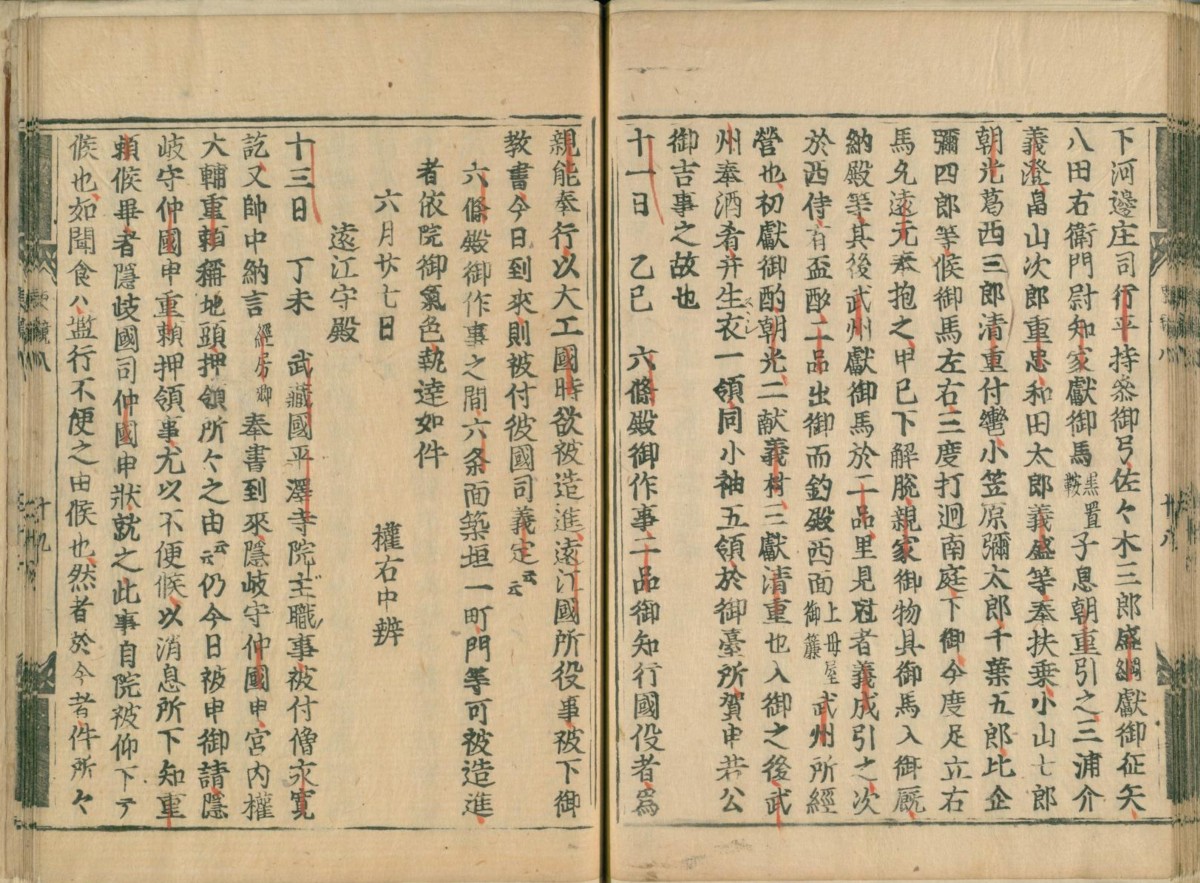 下河邊庄司行平持參御弓佐々木三郎盛綱獻御征矢
八田右衛門尉知家獻御馬黒鞍置子息朝重引之三浦介
義澄畠山次郎重忠和田太郎義盛等奉扶乗小山七郎
朝光葛西三郎清重付轡小笠原彌太郎千葉五郎比企
彌四郎等候御馬左右三度打廻南庭下御今度足立右
馬允遠元奉抱之甲已下解脱親家御物具御馬入御厩
納殿等其後武州獻御馬於二品里見冠者義成引之次
於西侍有盃酌二品出御而釣殿西面上母屋御簾武州所經
營也初獻御酌朝光二献義村三獻清重也入御之後武
州奉酒肴并生衣一領同小袖五領於御臺所賀申若公
御吉事之故也
十一日 乙巳 六條殿御作事二品御知行國役者爲
親能奉行以大工國時欲被造進遠江國所役事被下御
教書今日到來則被付彼國司義定云云
六條殿御作事之間六条面築垣一町門等可被造進
者依院御氣色執達如件
六月廿七日 權右中辨
遠江守殿
十三日 丁未 武藏國平澤寺院主職事被付僧永寛
訖又帥中納言經房卿奉書到來隱岐守仲國申宮内權
大輔重頼稱地頭押領所々之由云云仍今日被申御請隱
岐守仲國申重頼押領事尤以不便候以消息所下知重
頼候畢者隱岐國司仲國申状就之此事自院被仰下テ
候也如聞食ハ濫行不便之由候也然者於今者件所々